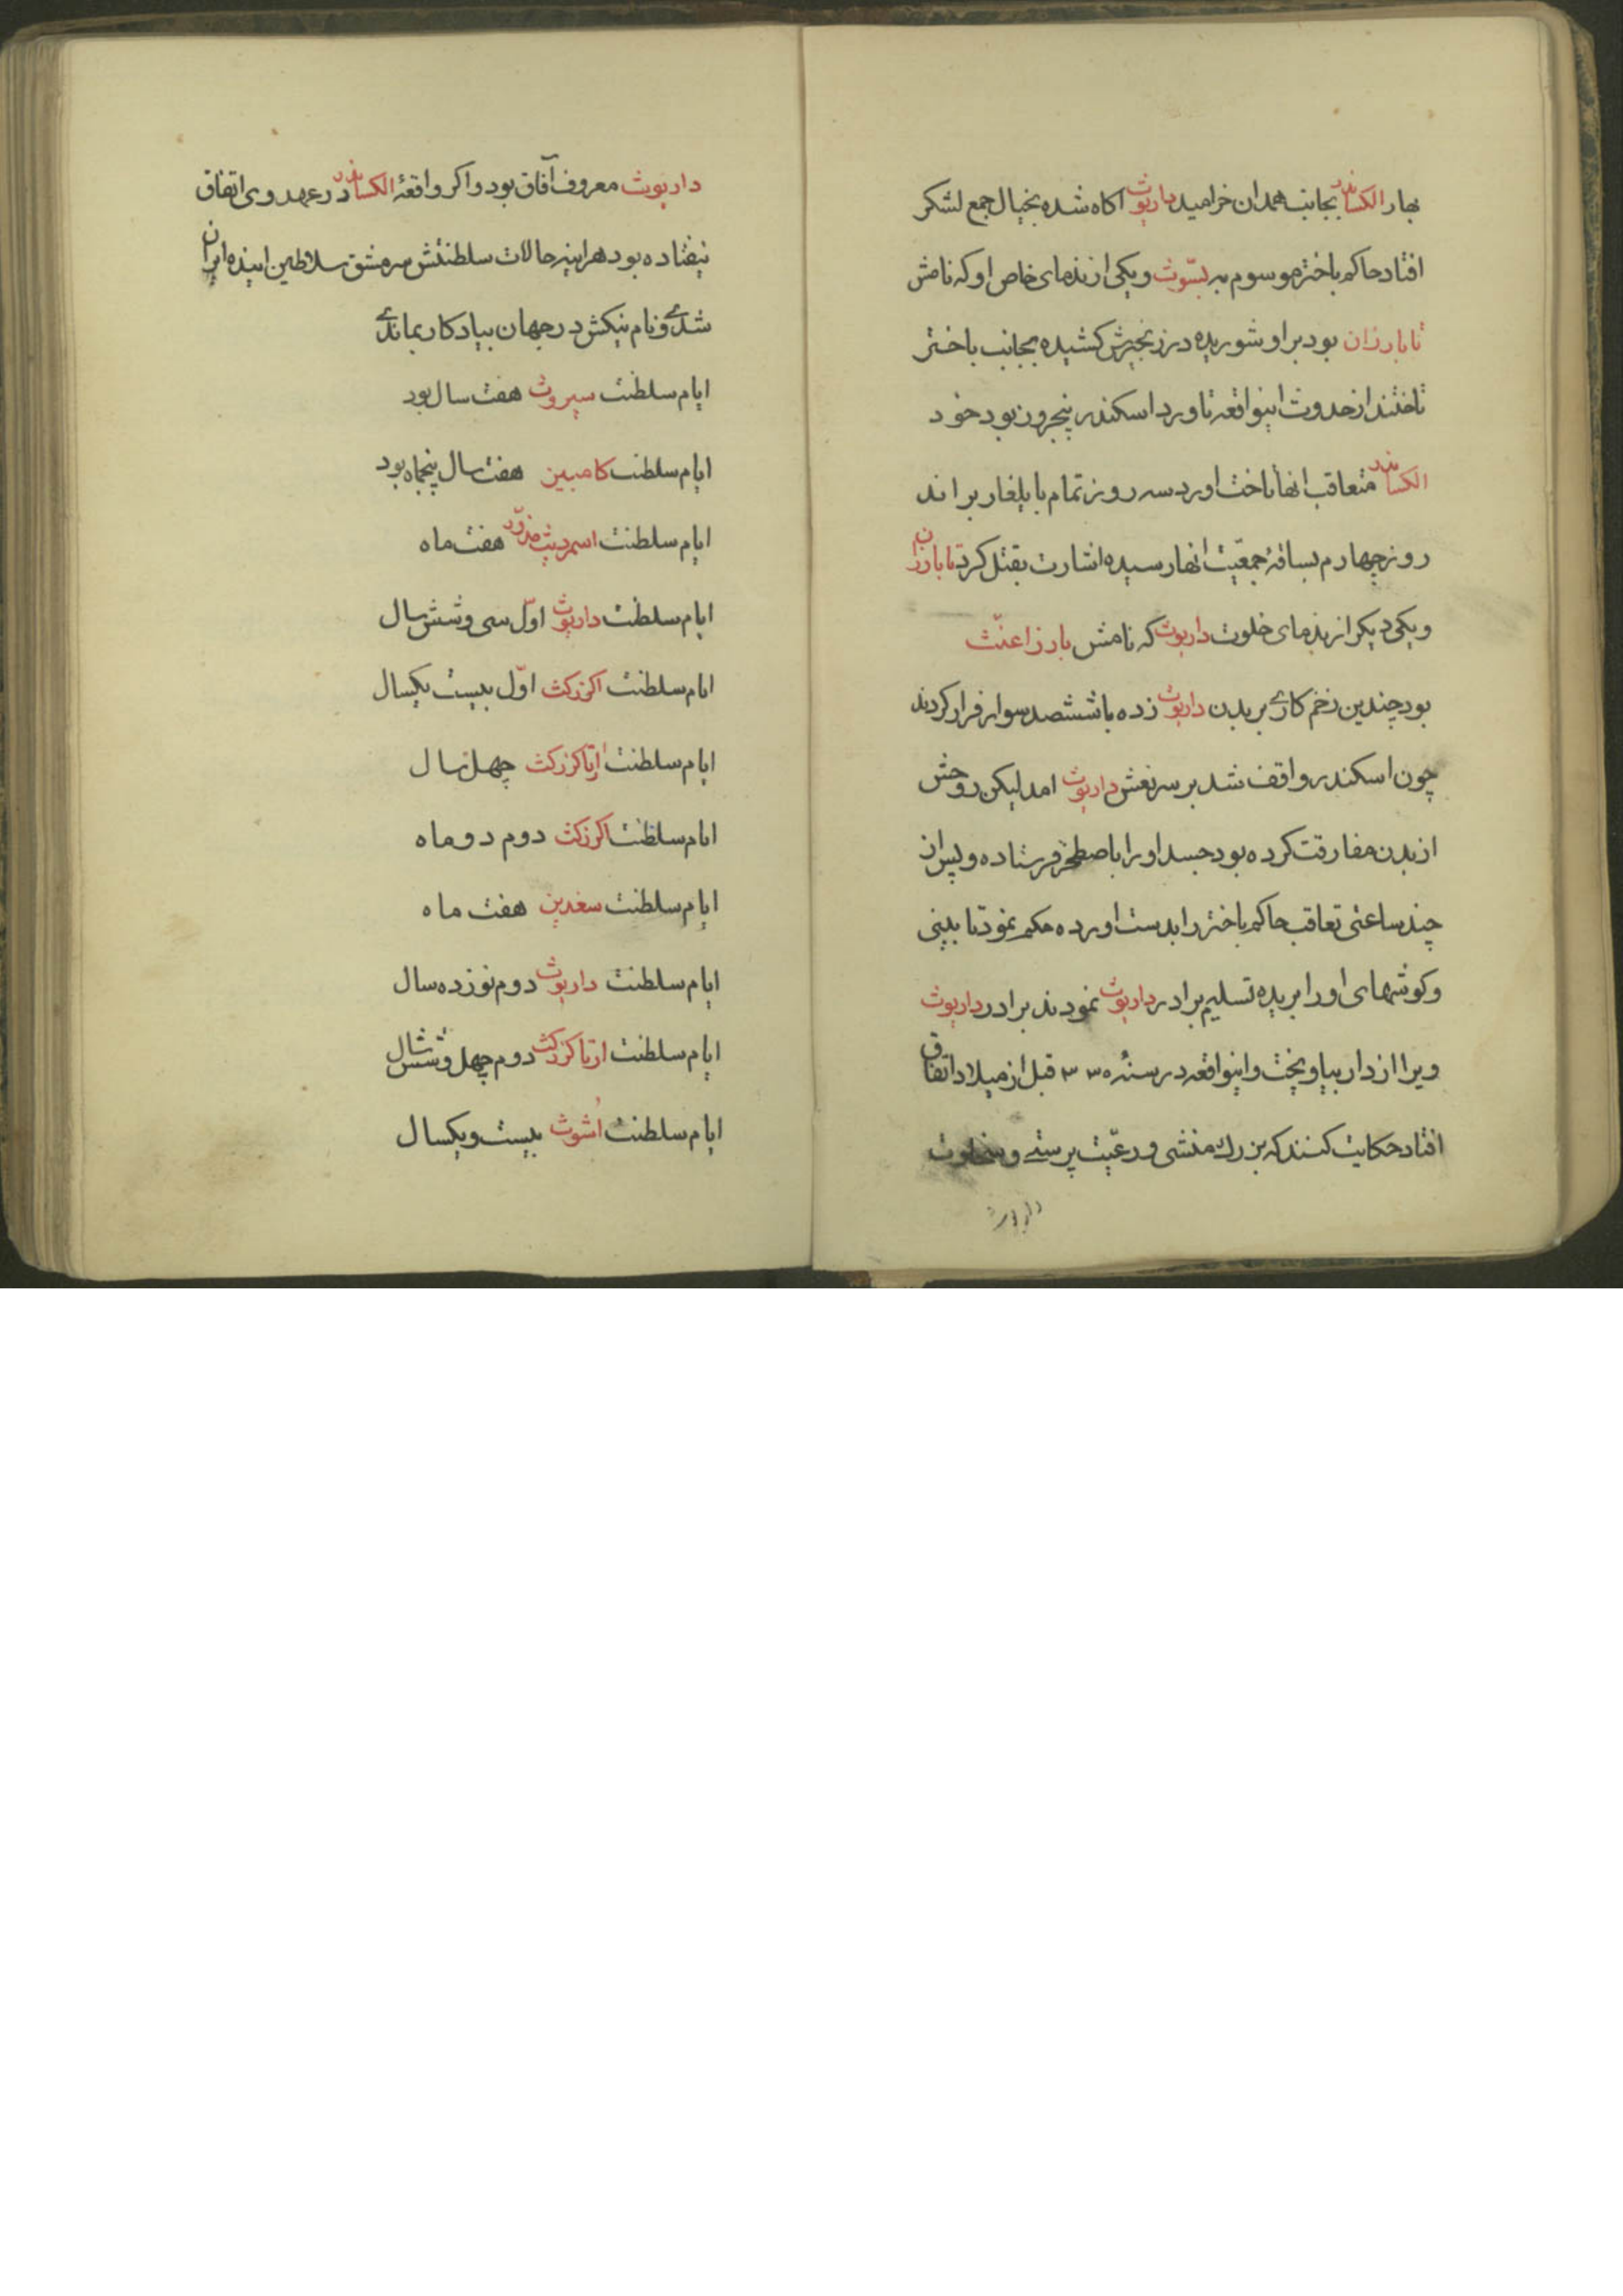 بهار الکساندر بجانب همدان خرامید داریوث اکاه شده بخیال جمع لشکر
افتاد حاکم باختر موسوم به بسّوث ویکی از ندمای خاص او که نامش
تابارزان بود بر او شوریده در زنجیرش کشیده بجانب باختر
تاختند از حدوث اینواقعه تا ورد اسکندر پنجروز بود خود
الکساندر متعاقب انها تاخت اورد سه روز تمام بایلغار براند
روز چهارم بساقهٔ جمعیّت انها رسیده اشارت بقتل کرد تابارزان
ویکی دیکر از ندمای خلوت داریوث که نامش بارزاعنّث
بود چندین زخم کاری بر بدن داریوث زده با ششصد سوار فرار کردند
چون اسکندر واقف شد بر سر نعش داریوث امد لیکن روحش
از بدن مفارقت کرده بود جسد او را باصطخر فرستاده و پس از ان
چند ساعتی تعاقب حاکم باختر را بدست اورده حکم نمود تا بینی
وکوشهای او را بریده تسلیم برادر داریوث نمودند برادر داریوث
ویرا از دار بیاویخت واینواقعه در سنهٔ ۳۳۵ قبل از میلاد اتفاق
افتاد حکایت کنند که بزرك منشی و رعیّت پرستی و سخاوت
داریوث
داریوث معروف آفاق بود واکر واقعهٔ الکساندر در عهد وی اتفاق
نیفتاده بود هراینه حالات سلطنتش سرمشق سلاطین ایندهٔ ایران
شدی ونام نیکش در جهان بیادکار بماندی
ایام سلطنت سیروث هفت سال بود
ایام سلطنت کامبین هفت سال پنجماه بود
ایام سلطنت اسمردیث مزوّر هفت ماه
ایام سلطنت داریوث اوّل سی وشش سال
ایام سلطنت اکزرکث اوّل بیست یکسال
ایام سلطنت ارتاکزرکث چهل سال
ایام سلطنت اکزرکث دوم دو ماه
ایام سلطنت سغدین هفت ماه
ایام سلطنت داریوث دوم نوزده سال
ایام سلطنت ارتاکزرکث دوم چهل وشش سال
ایام سلطنت اشوث بیست ویکسال